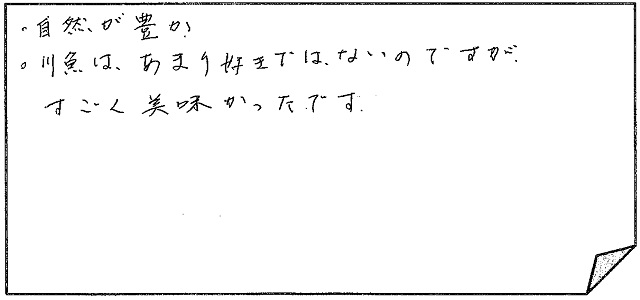 ・自然が豊か
・川魚は、あまり好きではないのですが
すごく美味かったです。